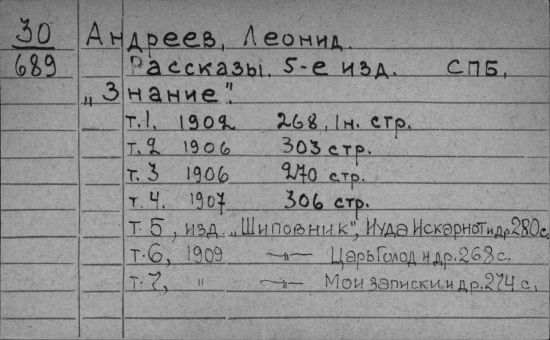 30 Андреев, Леонид.
689 Рассказы. 5-е изд. СПБ,
„Знание".
т.1. 1902 268, 1н. стр.
т.2 1906 303 стр.
т.3 1906 270 стр.
т.4. 1907 306 стр.
т.5, изд. „Шиповник", Иуда Искариот и др 280 с.
т.6, 1909 —"— Царь Голод и др. 268 с.
т.7, " —"— Мои записки и др. 274 с.